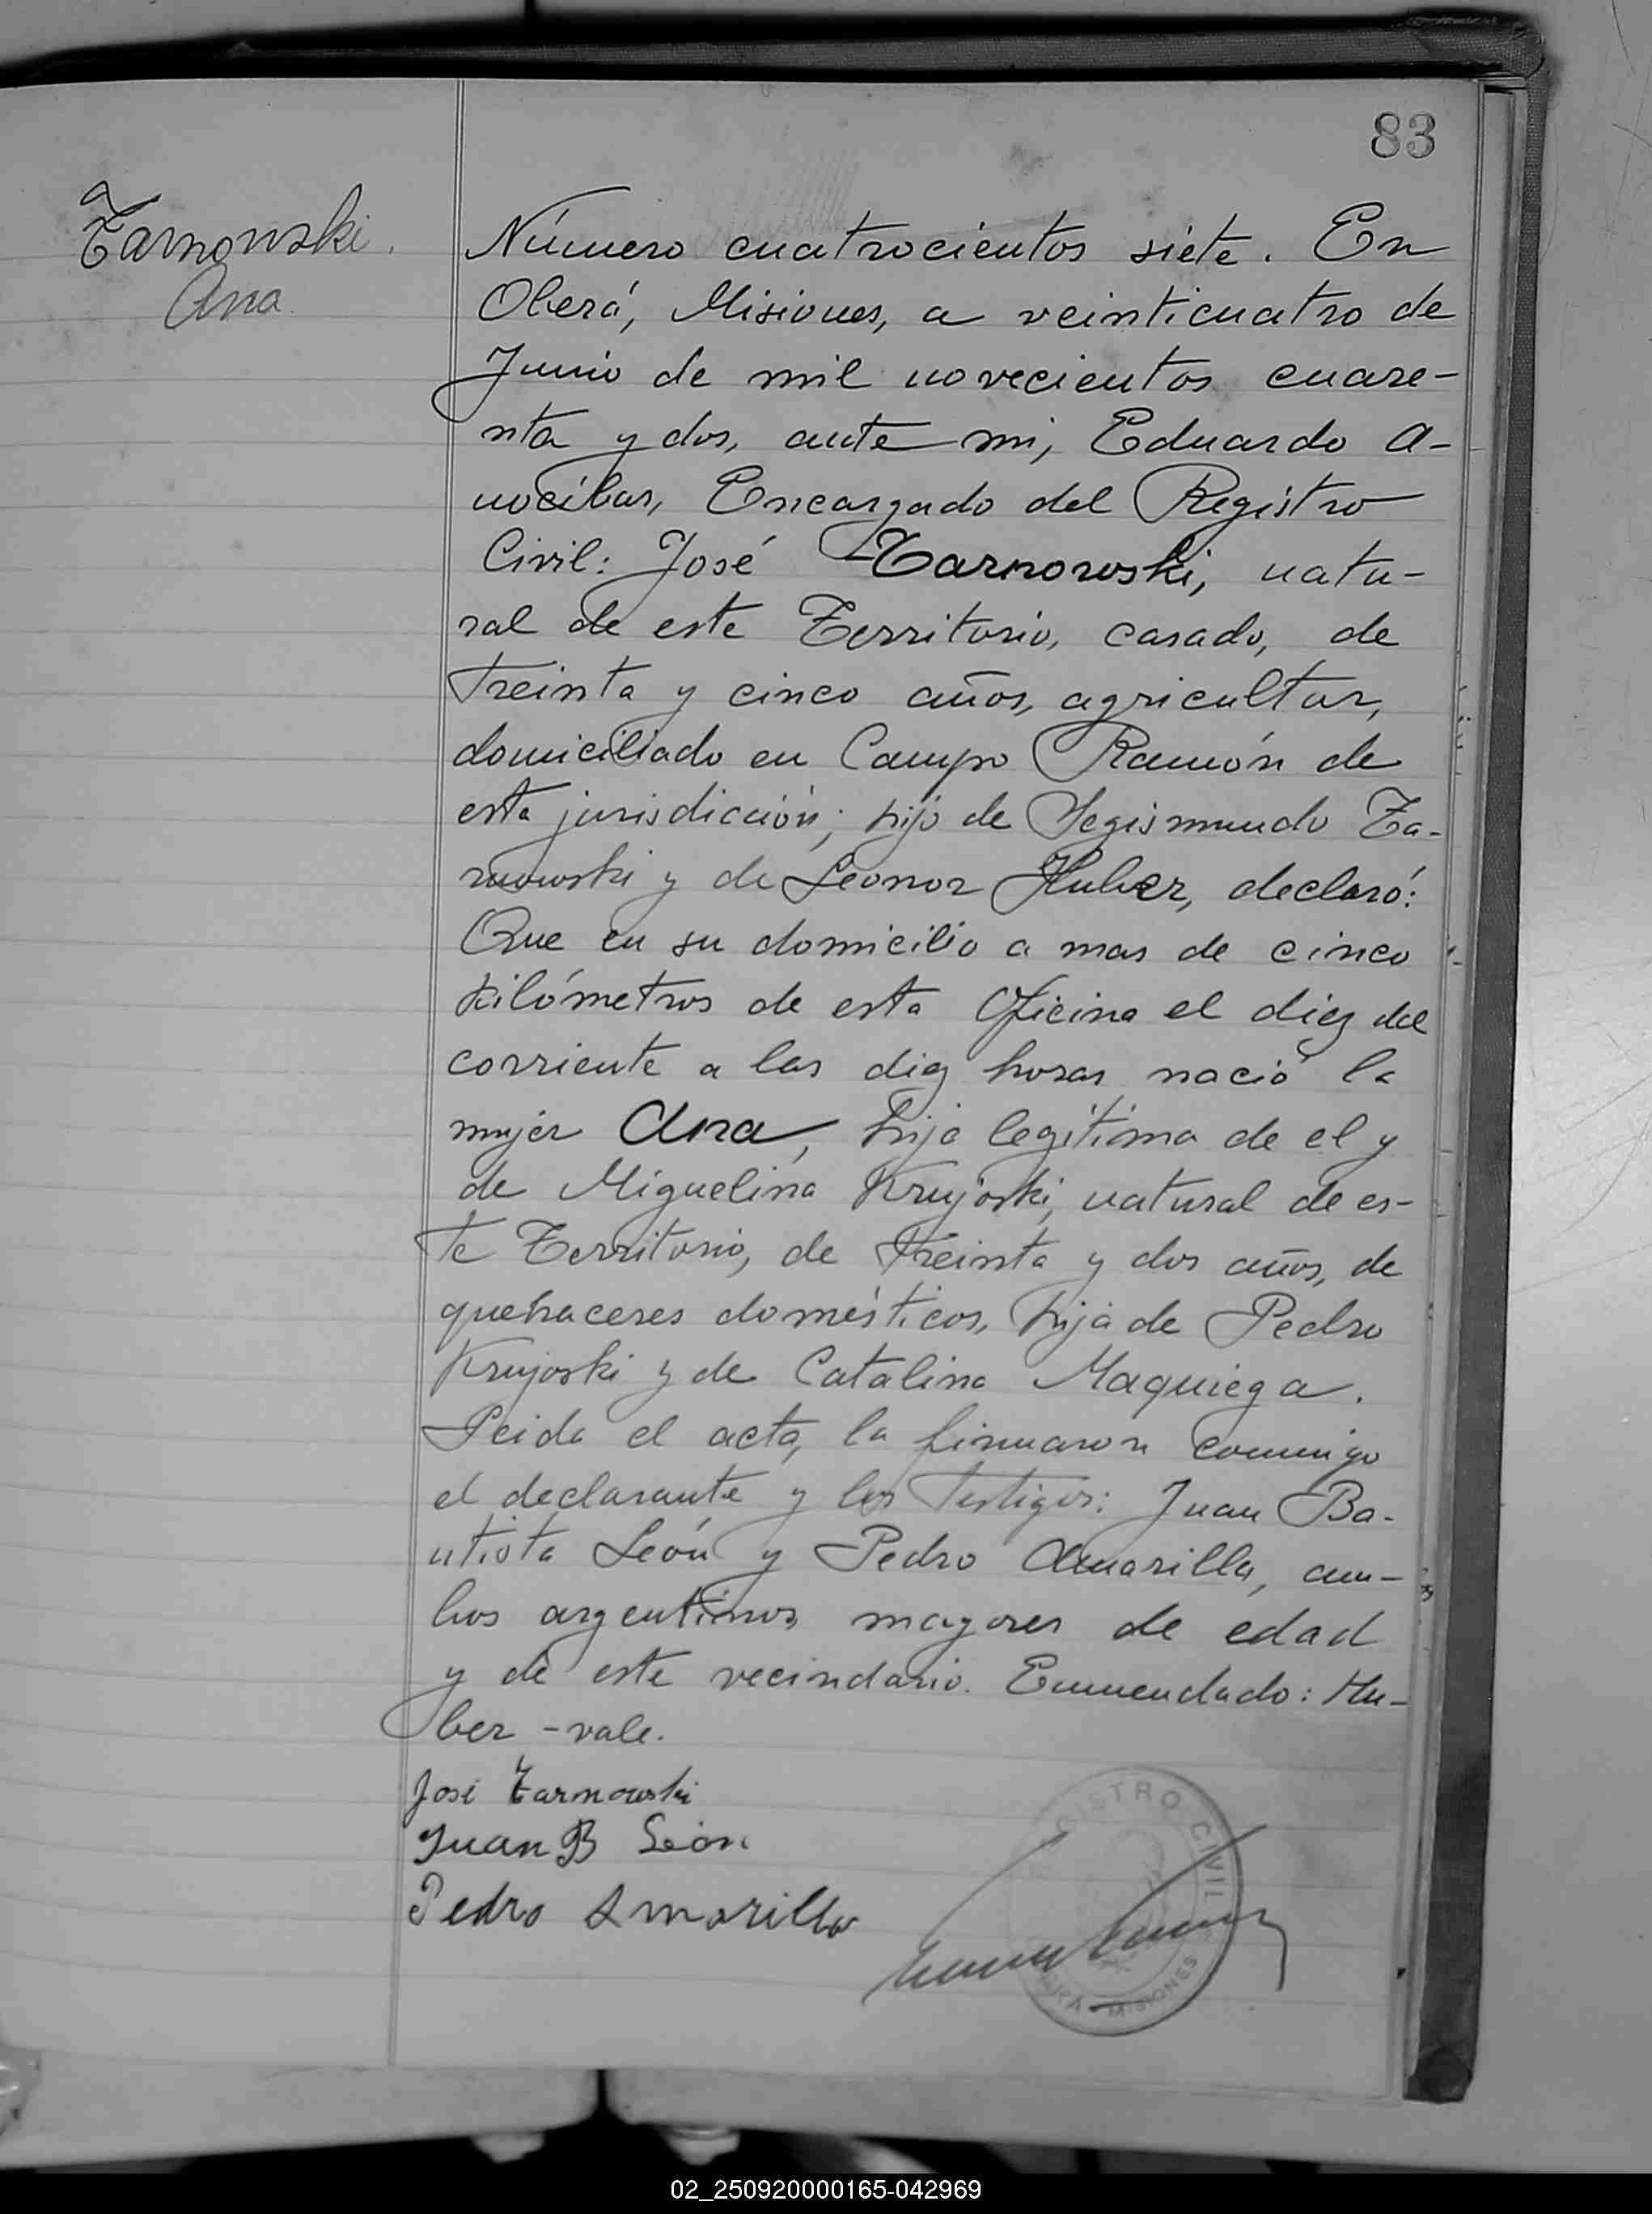 83
Tarnowski.
Ana.
Número cuatrocientos siete. En
Oberá, Misiones, a veinticuatro de
Junio de mil novecientos cuare-
nta y dos, ante mi, Eduardo A-
nocibar, Encargado del Registro
Civil: José Tarnowski, natu-
ral de este Territorio, casado, de
treinta y cinco años, agricultor,
domiciliado en Campo Ramón de
esta jurisdicción; hijo de Segismundo Ta-
rnowski y de Leonor Huber, declaró:
Que en su domicilio a mas de cinco
kilómetros de esta Oficina el diez del
corriente a las diez horas nació la
mujer Ana, hija legítima de el y
de Miguelina Krujoski, natural de es-
te Territorio, de treinta y dos años, de
quehaceres domésticos, hija de Pedro
Krujoski y de Catalina Maquiega.
Leida el acta, la firmaron conmigo
el declarante y los testigos: Juan Ba-
utista León y Pedro Amarilla, am-
bos argentinos, mayores de edad
y de este vecindario. Enmendado: Hu-
ber - vale.
José Tarnowski
Juan B León
Pedro Amarilla
REGISTRO CIVIL
OBERÁ - MISIONES
02_250920000165-042969